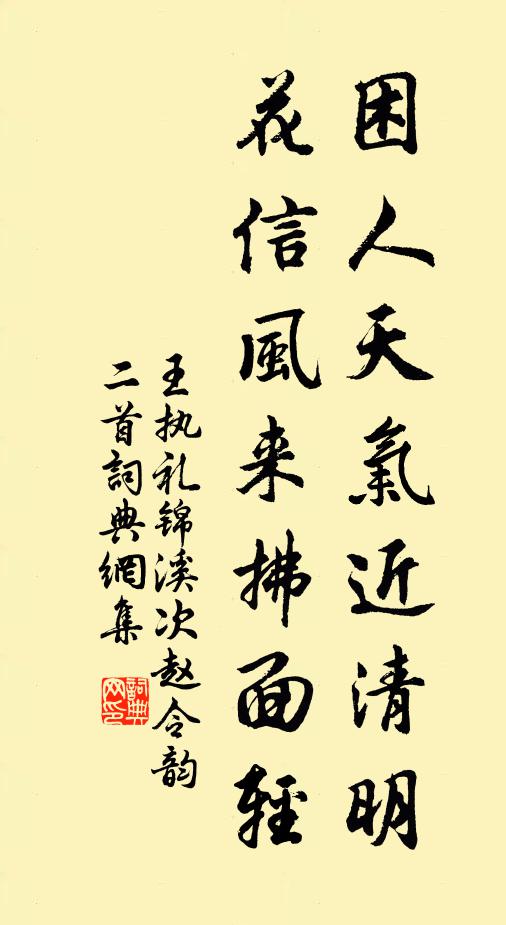 困人天氣近清明
花信風来拂面輕
王执礼锦溪次赵令韵
二首詞典網集
詞典
网印